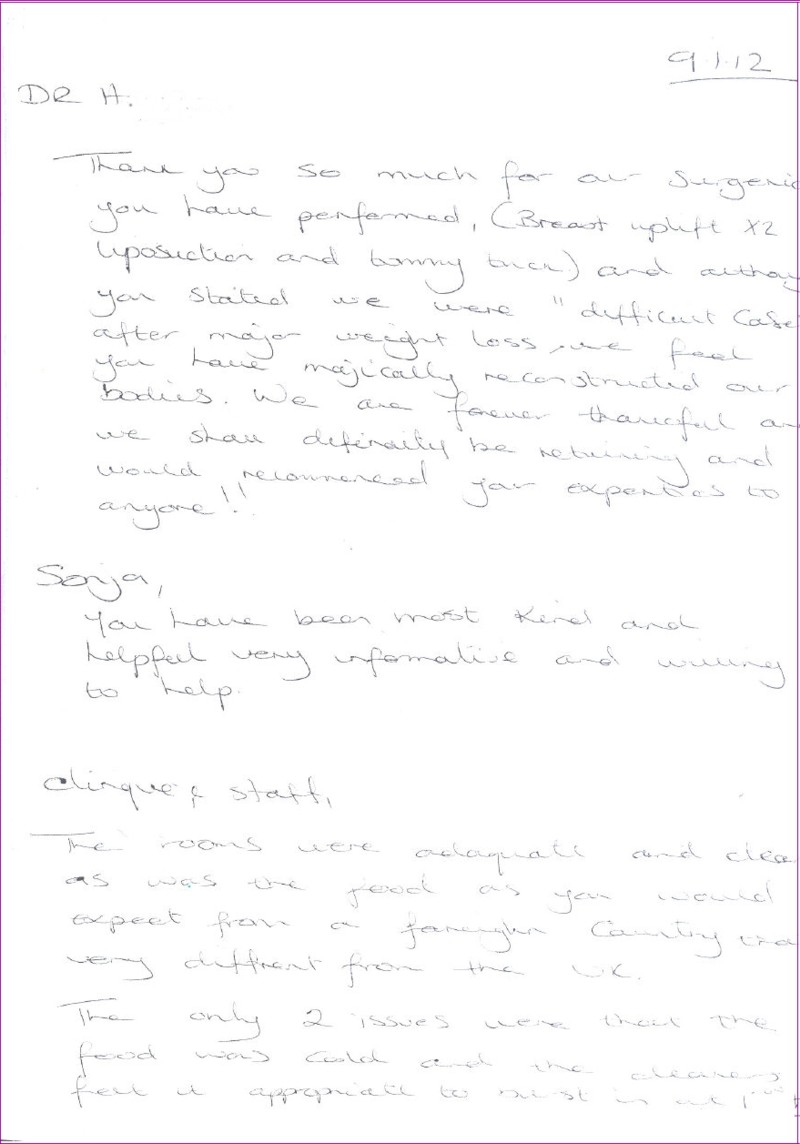 9.1.12
DR H.
Thank you so much for our surgeries
you have performed, (Breast uplift X2
liposuction and tummy tuck) and
you stated we were "difficult Case
after major weight loss, we feel
you have majically reconstructed our
bodies. We are forever thankful an
we shall definaitly be returning and
would recommened your experties to
anyone!!
Sonja,
You have been most kind and
helpful very infomative and willing
to help.
clinque & staff,
The rooms were adaquate and clea
as was the food as you would
expect from a foreighn Country
very diffrent from the UK.
The only 2 issues were that the
food was cold and the cleaners
felt it appropriate to in at